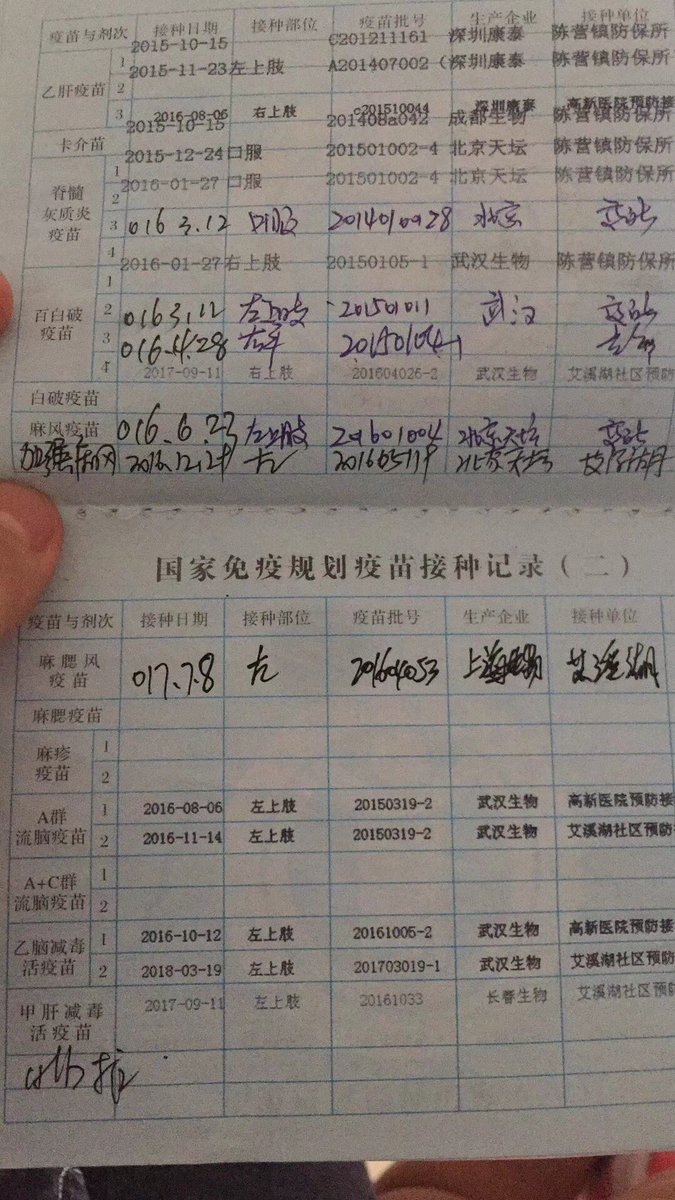 疫苗与剂次 接种日期 接种部位 疫苗批号 生产企业 接种单位
2015-10-15 C201211161 深圳康泰 陈营镇防保所
1 2015-11-23 左上肢 A201407002 ( 深圳康泰 陈营镇防保所
乙肝疫苗 2
3 2016-08-06 右上肢 c201510044 深圳康泰 高新医院预防接
卡介苗 2015-10-15 201408a042 成都生物 陈营镇防保所
1 2015-12-24 口服 201501002-4 北京天坛 陈营镇防保所
脊髓灰质炎疫苗 2 2016-01-27 口服 201501002-4 北京天坛 陈营镇防保所
3 016 3.12 口服 2014010928 北京
4
2016-01-27 右上肢 20150105-1 武汉生物 陈营镇防保所
1
百白破疫苗 2 016 3.12 左上肢 201501011 武汉
3 016.4.28
4 2017-09-11 右上肢 201604026-2 武汉生物 艾溪湖社区预防
白破疫苗
麻风疫苗 016.6.23 左上肢 201601004 北京天坛
2016.12.29 左 201605119 北京天坛
国家免疫规划疫苗接种记录(二)
疫苗与剂次 接种日期 接种部位 疫苗批号 生产企业 接种单位
麻腮风疫苗 017.7.8 左 201604053 上海 艾溪湖
麻腮疫苗
麻疹疫苗 1
2
A群流脑疫苗 1 2016-08-06 左上肢 20150319-2 武汉生物 高新医院预防接
2 2016-11-14 左上肢 20150319-2 武汉生物 艾溪湖社区预防
A+C群流脑疫苗 1
2
乙脑减毒活疫苗 1 2016-10-12 左上肢 20161005-2 武汉生物 高新医院预防接
2 2018-03-19 左上肢 201703019-1 武汉生物 艾溪湖社区预防
甲肝减毒活疫苗 2017-09-11 左上肢 20161033 长春生物 艾溪湖社区预防